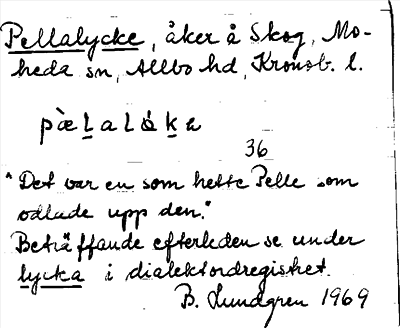 Pellalycke, åker å Skog, Mo-
heda sn, Allbo hd, Kronob. l.
pæ̀laló̀ka
36
"Det var en som hette Pelle som
odlade upp den."
Beträffande efterleden se under
lycka i dialektordregistret.
B. Lundgren 1969